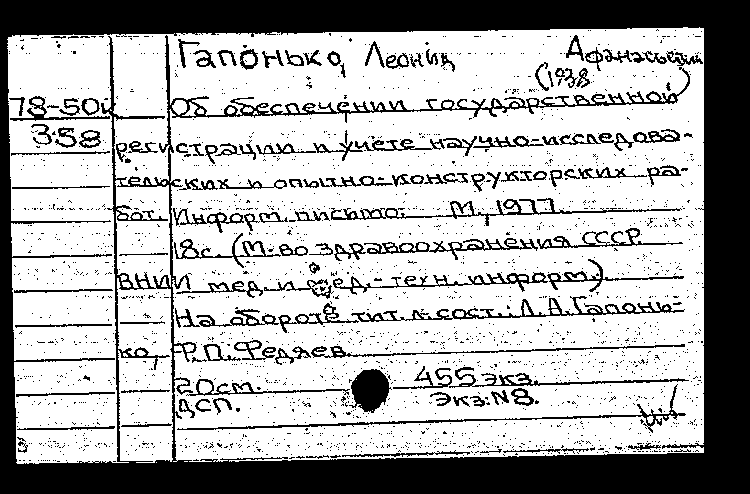 Гапонько, Леонид Афанасьевич
(1938 )
78-50к Об обеспечении государственной
358 регистрации и учете научно-исследова-
тельских и опытно-конструкторских ра-
бот. Информ. письмо. М., 1977.
18с. (М-во здравоохранения СССР.
ВНИИ мед. и мед.-техн. информ.).
На обороте тит. л. сост.: Л.А. Гапонь-
ко, Ф.П. Федяев.
20см. 455 экз.
ДСП. Экз. №8.